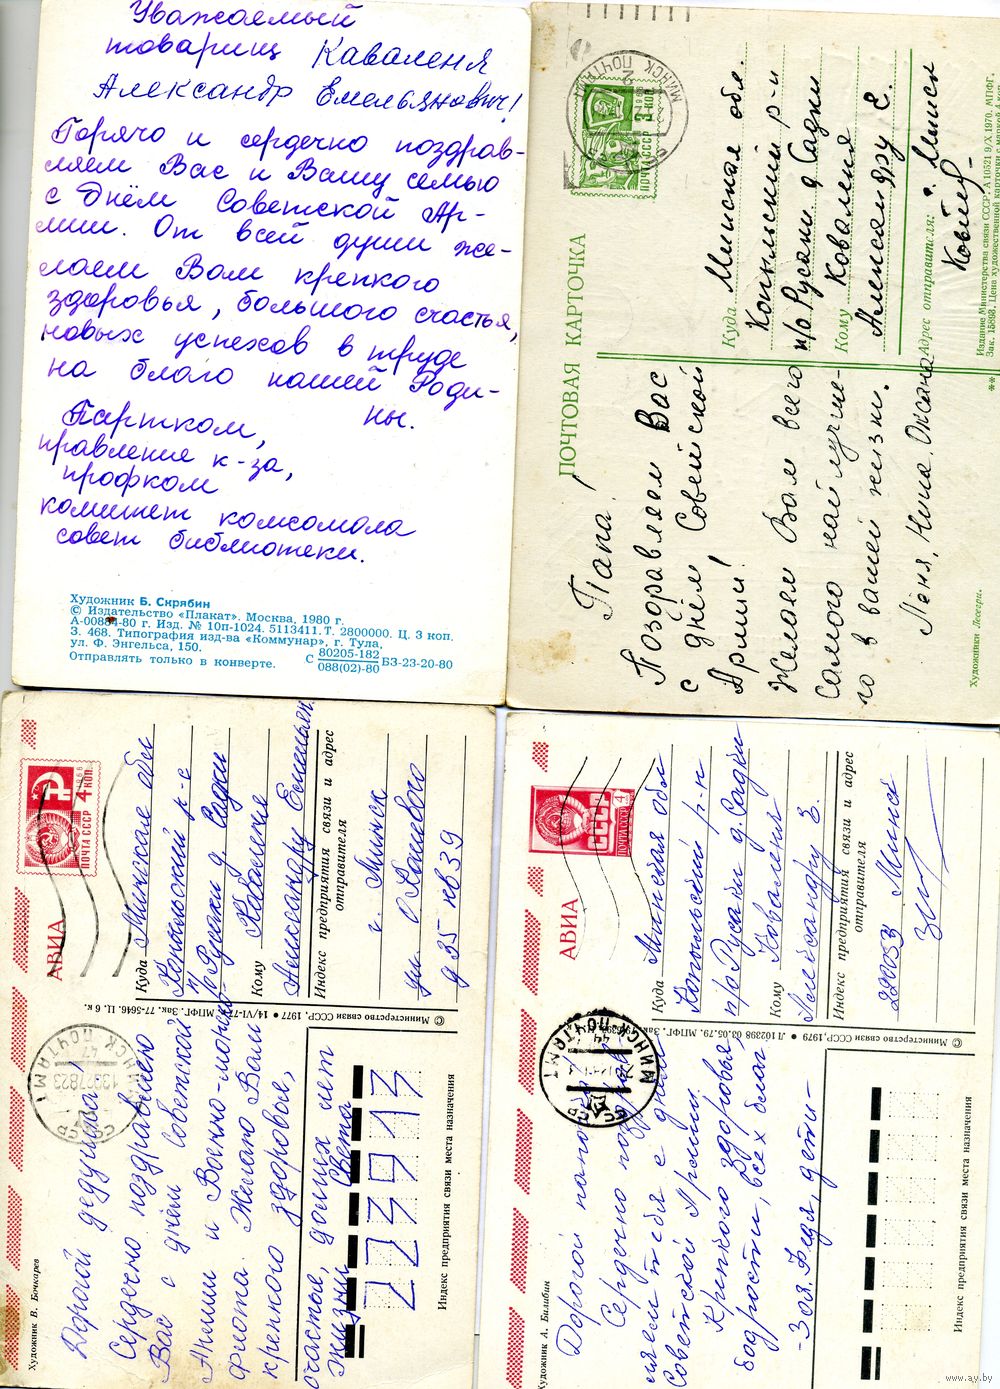 Уважаемый
товарищ Каваленя
Александр Емельянович!
Горячо и сердечно поздрав-
ляем Вас и Вашу семью
с Днём Советской Ар-
мии. От всей души же-
лаем Вам крепкого
здоровья, большого счастья,
новых успехов в труде
на благо нашей Роди-
ны.
Партком,
правление к-за,
профком
комитет комсомола
совет библиотеки.
Художник Б. Скрябин
© Издательство «Плакат». Москва, 1980 г.
А-00884-80 г. Изд. № 10п-1024. 5113411. Т. 2800000. Ц. 3 коп.
З. 468. Типография изд-ва «Коммунар», г. Тула,
ул. Ф. Энгельса, 150.
Отправлять только в конверте. С 80205-182 БЗ-23-20-80
088(02)-80
ПОЧТОВАЯ КАРТОЧКА
ПОЧТА СССР
МИНСК ПОЧТАМТ
Папа!
Поздравляем Вас
с днём Советской
Армии!
Желаем Вам всего
самого найлучше-
го в вашей жизни.
Лёня, Нина, Оксана
Художники Лесегри.
Куда Минская обл.
Копыльский р-н
п/о Русаки д. Садки
Кому Коваленя
Александру Е.
Адрес отправителя: г. Минск
Издание Министерства связи СССР. А 10521 9/X.1970. МПФГ.
Зак. 15893. Цена художественной карточки с маркой 4 коп.
**
АВИА
ПОЧТА СССР 4 КОП
1966
МИНСК ПОЧТАМТ
СССР
Художник В. Бочкарев
Дорогой дедушка!
Сердечно поздравляю
Вас с днём Советской
Армии и Военно-морского
Флота. Желаю Вам
крепкого здоровья,
счастья, долгих лет
жизни Света
223913
Индекс предприятия связи места назначения
© Министерство связи СССР, 1977 • 14/VI-77. МПФГ. Зак. 77-5646. Ц. 6 к.
Куда Минская обл
Копыльский р-н
п/о Русаки д. Садки
Кому Коваленя
Александру Емельян
Индекс предприятия связи и адрес
отправителя
г. Минск
ул. О Кошевого
д 25 кв 39
АВИА
ПОЧТА СССР 4
МИНСК ПОЧТАМТ
СССР
Художник А. Билибин
Дорогой папа
Сердечно поздрав-
ляем тебя с днём
Советской Армии.
Крепкого здоровья
бодрости, всех благ
- Зоя, Федя, дети -
Индекс предприятия связи места назначения
© Министерство связи СССР, 1979 • Л 102398 03.05.79. МПФГ. Зак.
Куда Минская обл
Копыльский р-н
п/о Русаки д. Садки
Кому Коваленя
Александру Е.
Индекс предприятия связи и адрес
отправителя
220053 Минск
www.ay.by